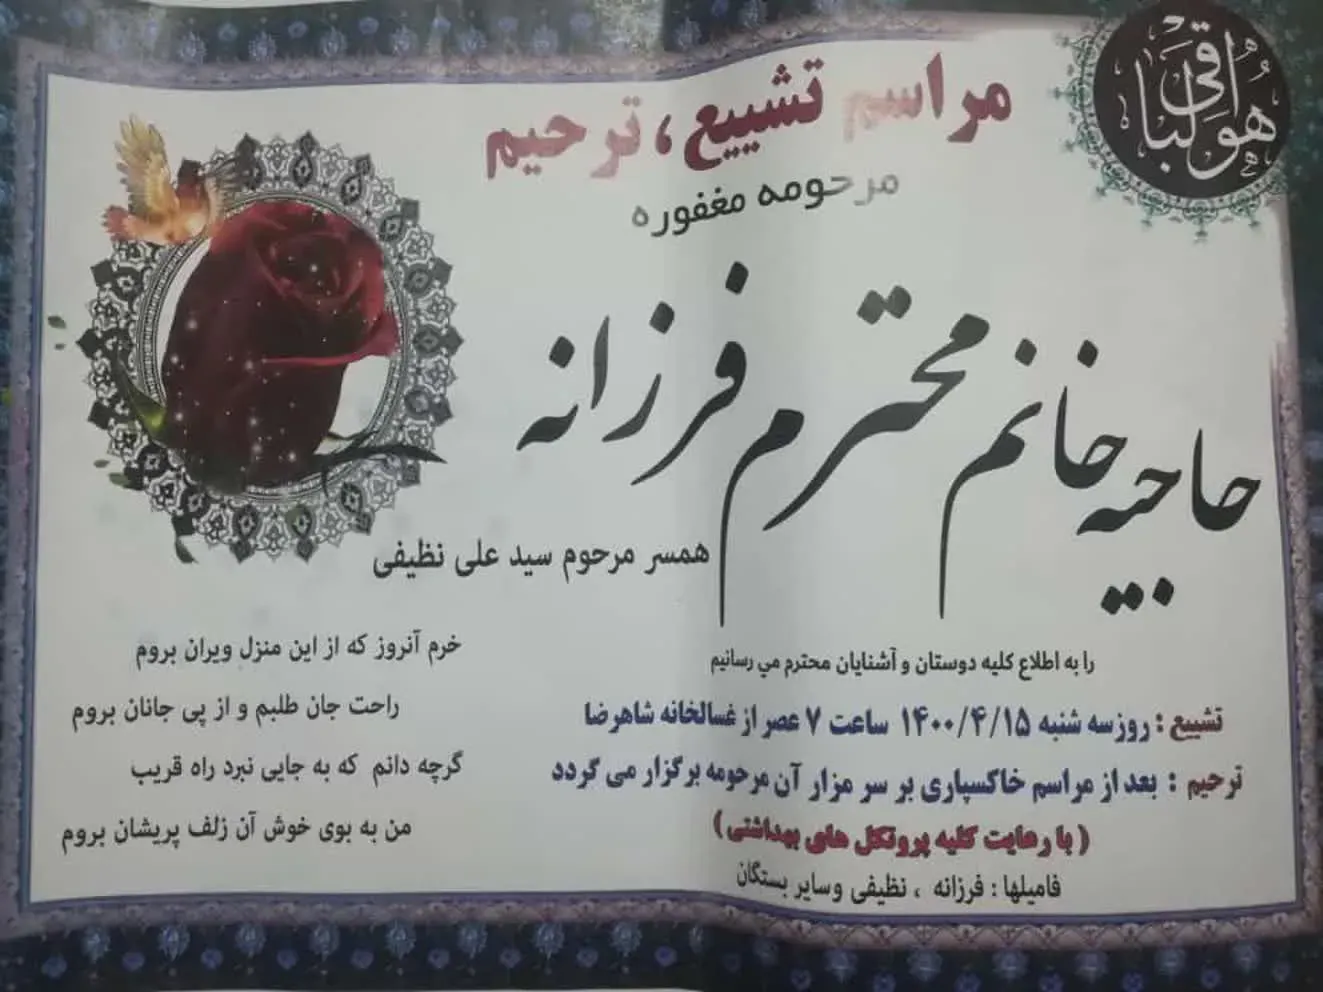 هوالباقی
مراسم تشییع ، ترحیم
مرحومه مغفوره
حاجیه خانم محترم فرزانه
همسر مرحوم سید علی نظیفی
را به اطلاع کلیه دوستان و آشنایان محترم می رسانیم
تشییع : روز سه شنبه ۱۴۰۰/۴/۱۵ ساعت ۷ عصر از غسالخانه شاهرضا
ترحیم : بعد از مراسم خاکسپاری بر سر مزار آن مرحومه برگزار می گردد
( با رعایت کلیه پروتکل های بهداشتی )
فامیلها : فرزانه ، نظیفی وسایر بستگان
خرم آنروز که از این منزل ویران بروم
راحت جان طلبم و از پی جانان بروم
گرچه دانم که به جایی نبرد راه قریب
من به بوی خوش آن زلف پریشان بروم